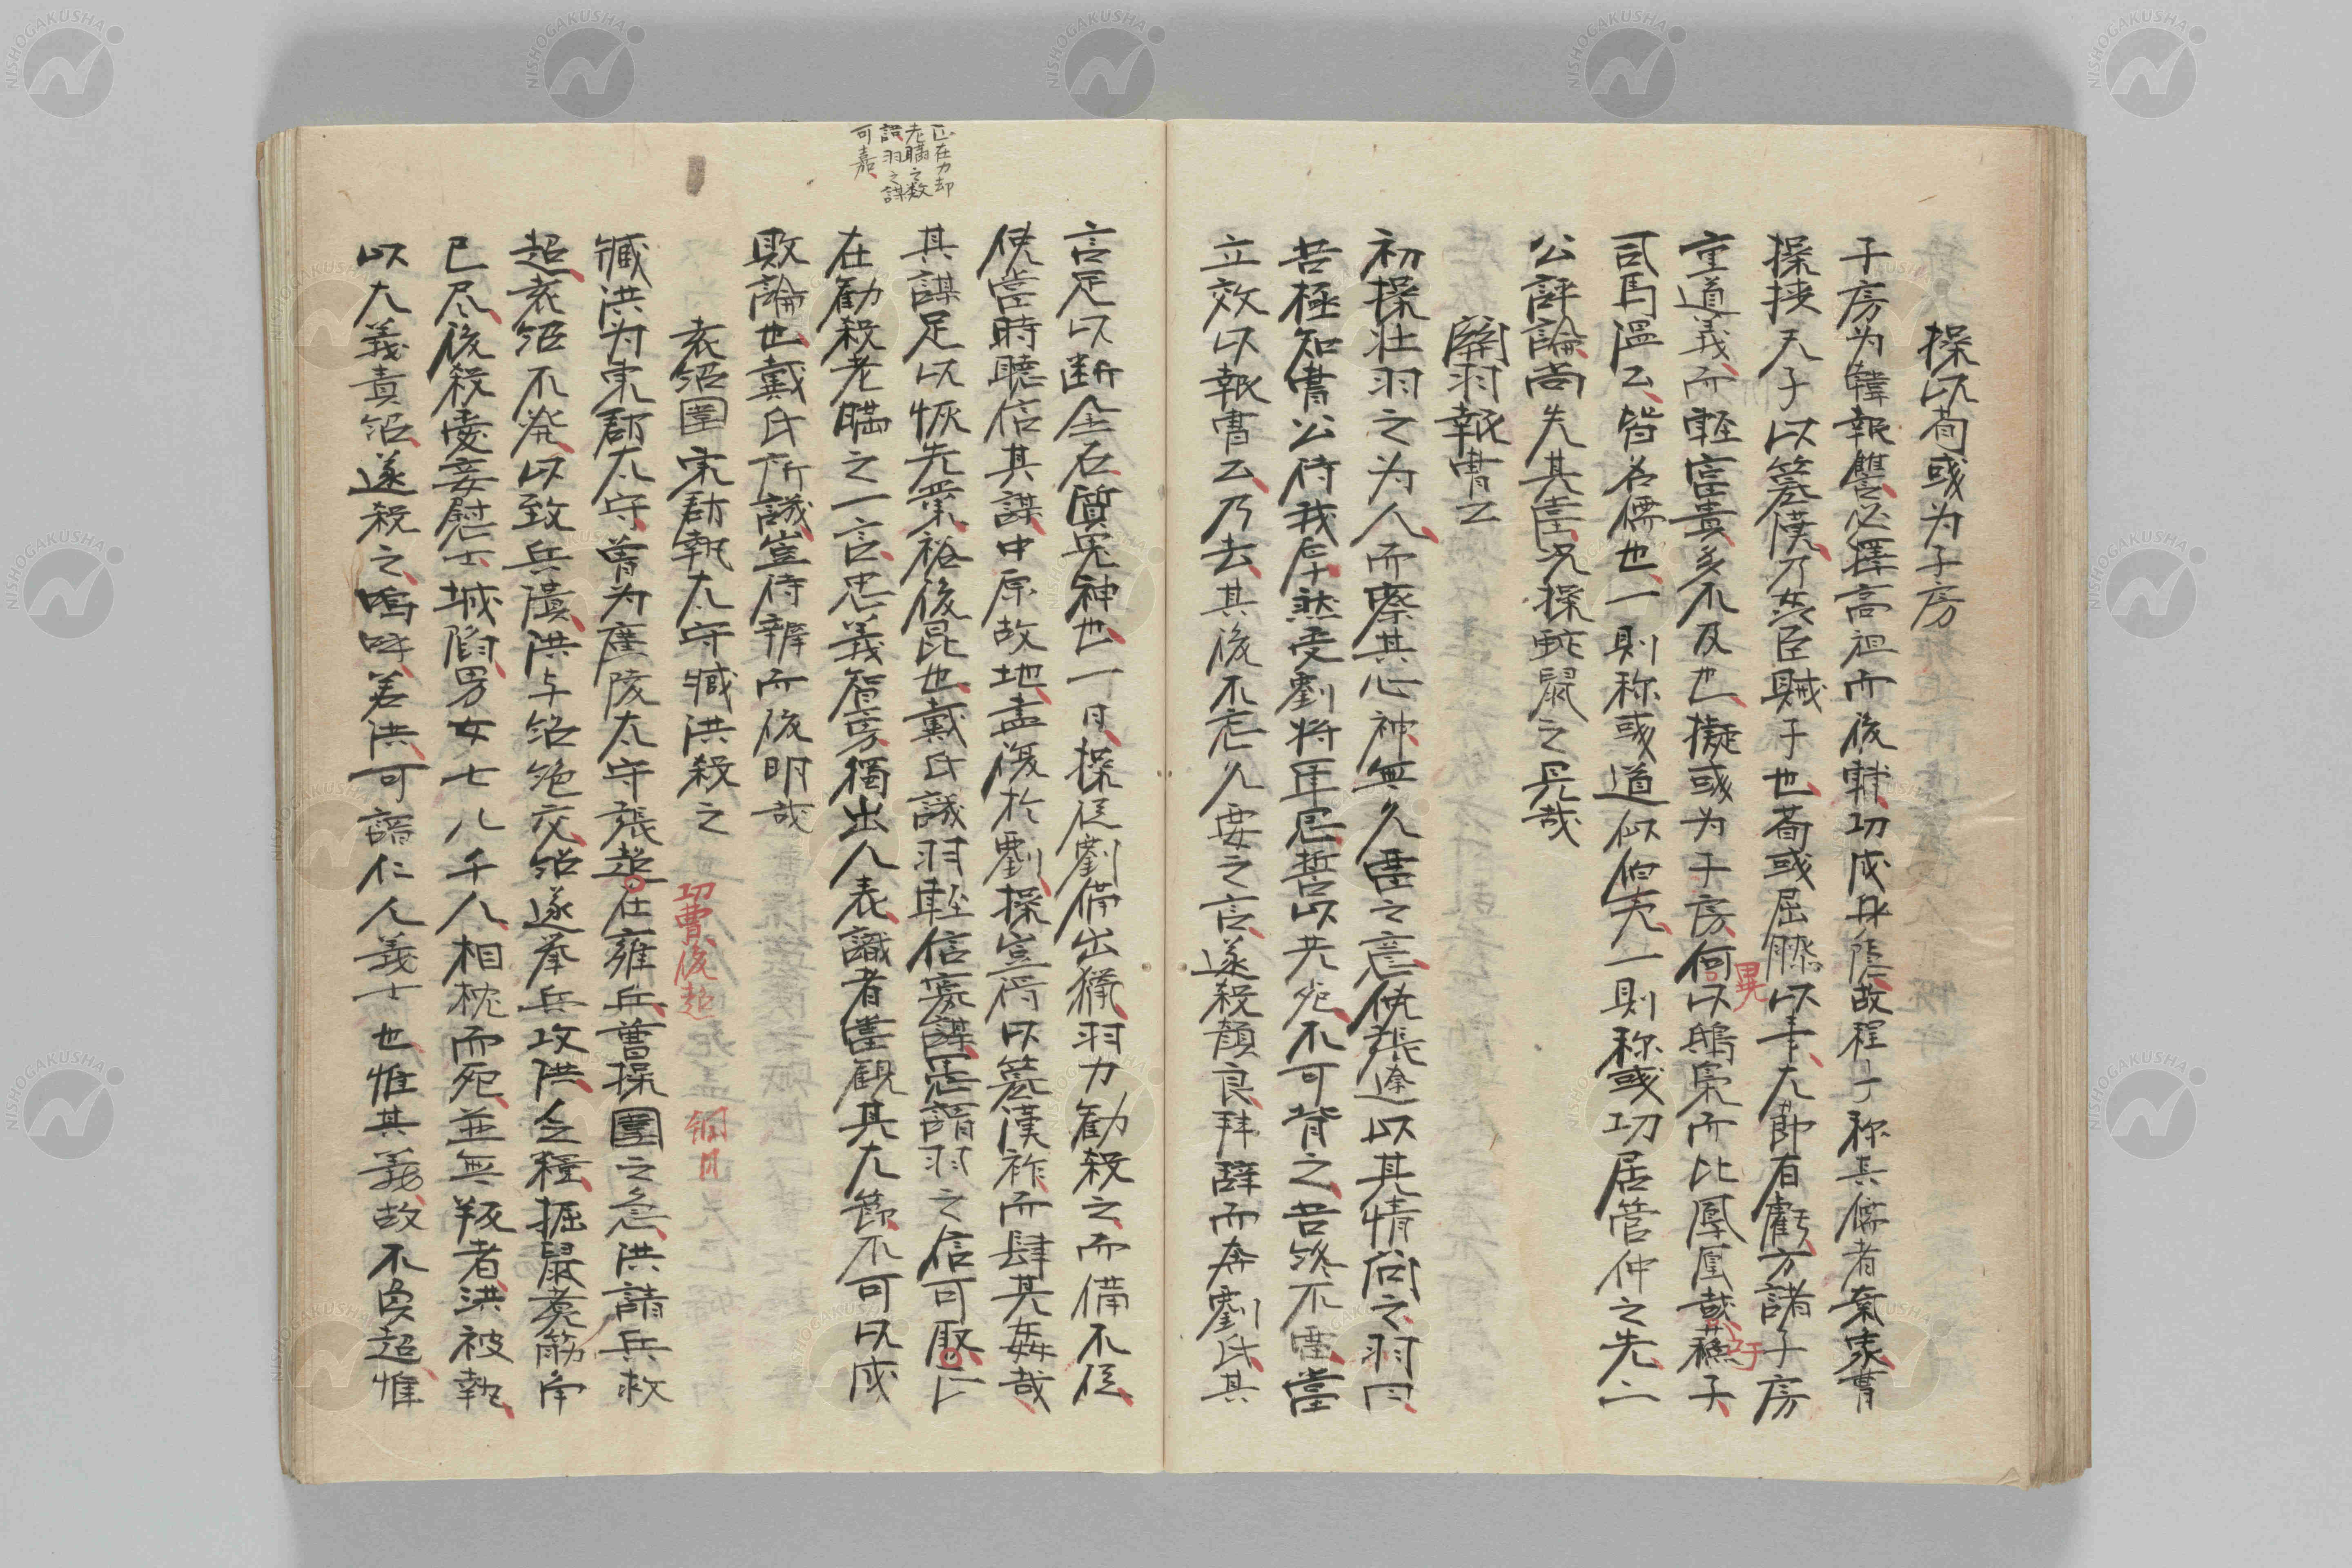 操以荀彧为子房
子房为韓報讐必擇高祖而後輔功成身隱故程子称其儒者氣象曹
操挟天子以簒漢乃姦臣賊子也荀彧屈膝以事大節有虧方諸子房
重道義而輕富貴多不及也擬彧为子房何以鴟梟而比鳳凰哉蘓子
異
之于
司馬温公皆名儒也一則称彧道似伯夷一則称彧功居管仲之先二
公評論尚失其當况操蚖鼠之見哉
関羽報曹公
初操壮羽之为人而察其心神無久畱之意使張遼以其情问之羽曰
吾極知曹公待我厚然受劉将軍恩誓以共死不可背之吾終不畱當
立效以報曹公乃去其後不忘久要之言遂殺顏良拜辞而奔劉氏其
言足以断金石質鬼神也一日操從劉備出獵羽力勸殺之而備不從
使當時聽信其謀中原故地盡復於劉操豈得以簒漢祚而肆其姦哉
其謀足以恢先業裕後昆也戴氏議羽輕信寡謀愚謂羽之信可取亡
在勸殺老瞞之一言忠義智高獨出人表識者當觀其大節不可以成
敗論也戴氏所議豈待辨而後明哉
正在力却
老瞞之数
語羽之謀
可嘉
袁紹圍東郡執太守臧洪殺之
功曹後超
綱目
臧洪为東郡太守曽为廣陵太守張超在雍丘曹操圍之急洪請兵救
超袁紹不発以致兵潰洪与紹絶交紹遂挙兵攻洪令糧掘鼠煮筋角
已尽後殺愛妾慰士城陷男女七八千人相枕而死並無叛者洪被執
以大義責紹遂殺之嗚呼若洪可謂仁人義士也惟其義故不負超惟